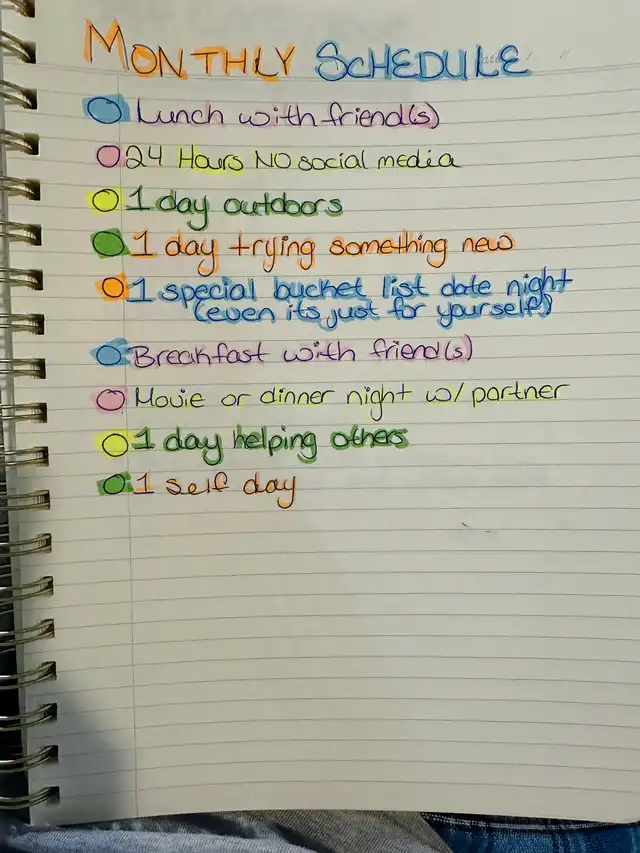 MONTHLY SCHEDULE
Lunch with friend(s)
24 Hours NO social media
1 day outdoors
1 day trying something new
1 special bucket list date night
(even its just for yourself)
Breakfast with friend(s)
Movie or dinner night w/ partner
1 day helping others
1 self day